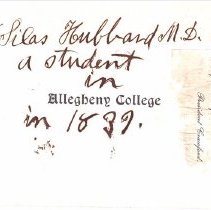 Silas Hubbard M.D.
a student
in
Allegheny College
in 1839.
President Crawford.